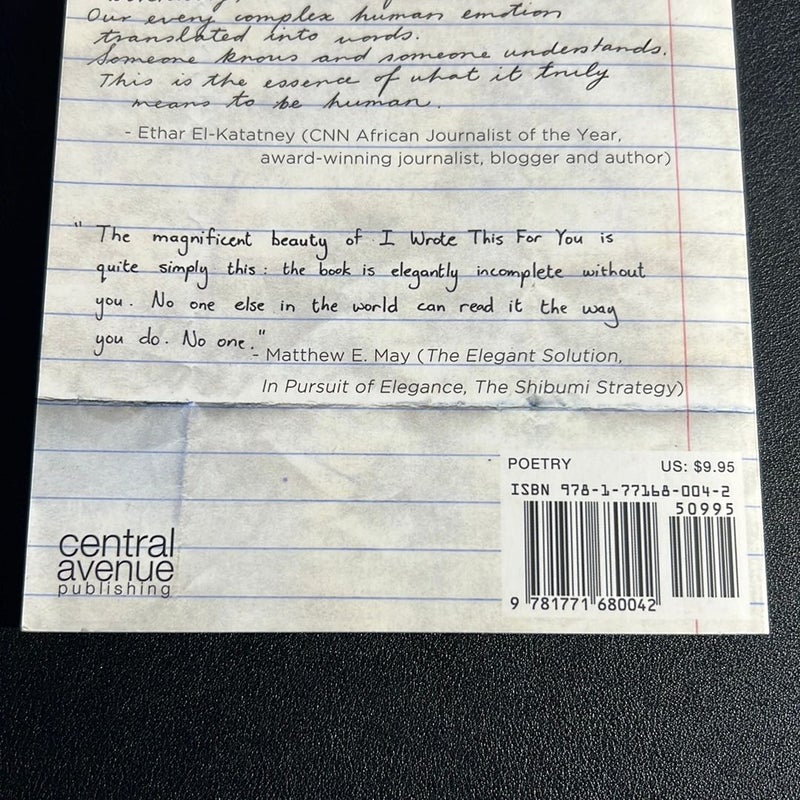 Our every complex human emotion
translated into words.
Someone knows and someone understands.
This is the essence of what it truly
means to be human.
- Ethar El-Katatney (CNN African Journalist of the Year,
award-winning journalist, blogger and author)
"The magnificent beauty of I Wrote This For You is
quite simply this: the book is elegantly incomplete without
you. No one else in the world can read it the way
you do. No one."
- Matthew E. May (The Elegant Solution,
In Pursuit of Elegance, The Shibumi Strategy)
POETRY US: $9.95
ISBN 978-1-77168-004-2
50995
9 781771 680042
central
avenue
publishing